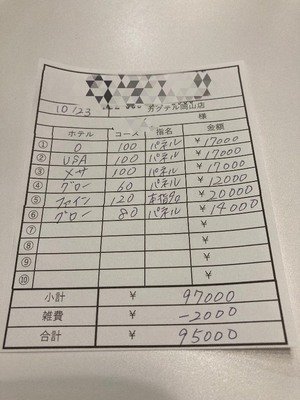 10/23 カクテル岡山店
様
ホテル コース 指名 金額
① O 100 パネル ¥17000
② USA 100 パネル ¥17000
③ メサ 100 パネル ¥17000
④ グロー 60 パネル ¥12000
⑤ ファイン 120 本指名 ¥20000
⑥ グロー 80 パネル ¥14000
⑦ ¥
⑧ ¥
⑨ ¥
⑩ ¥
小計 ¥ 97000
雑費 ¥ -2000
合計 ¥ 95000